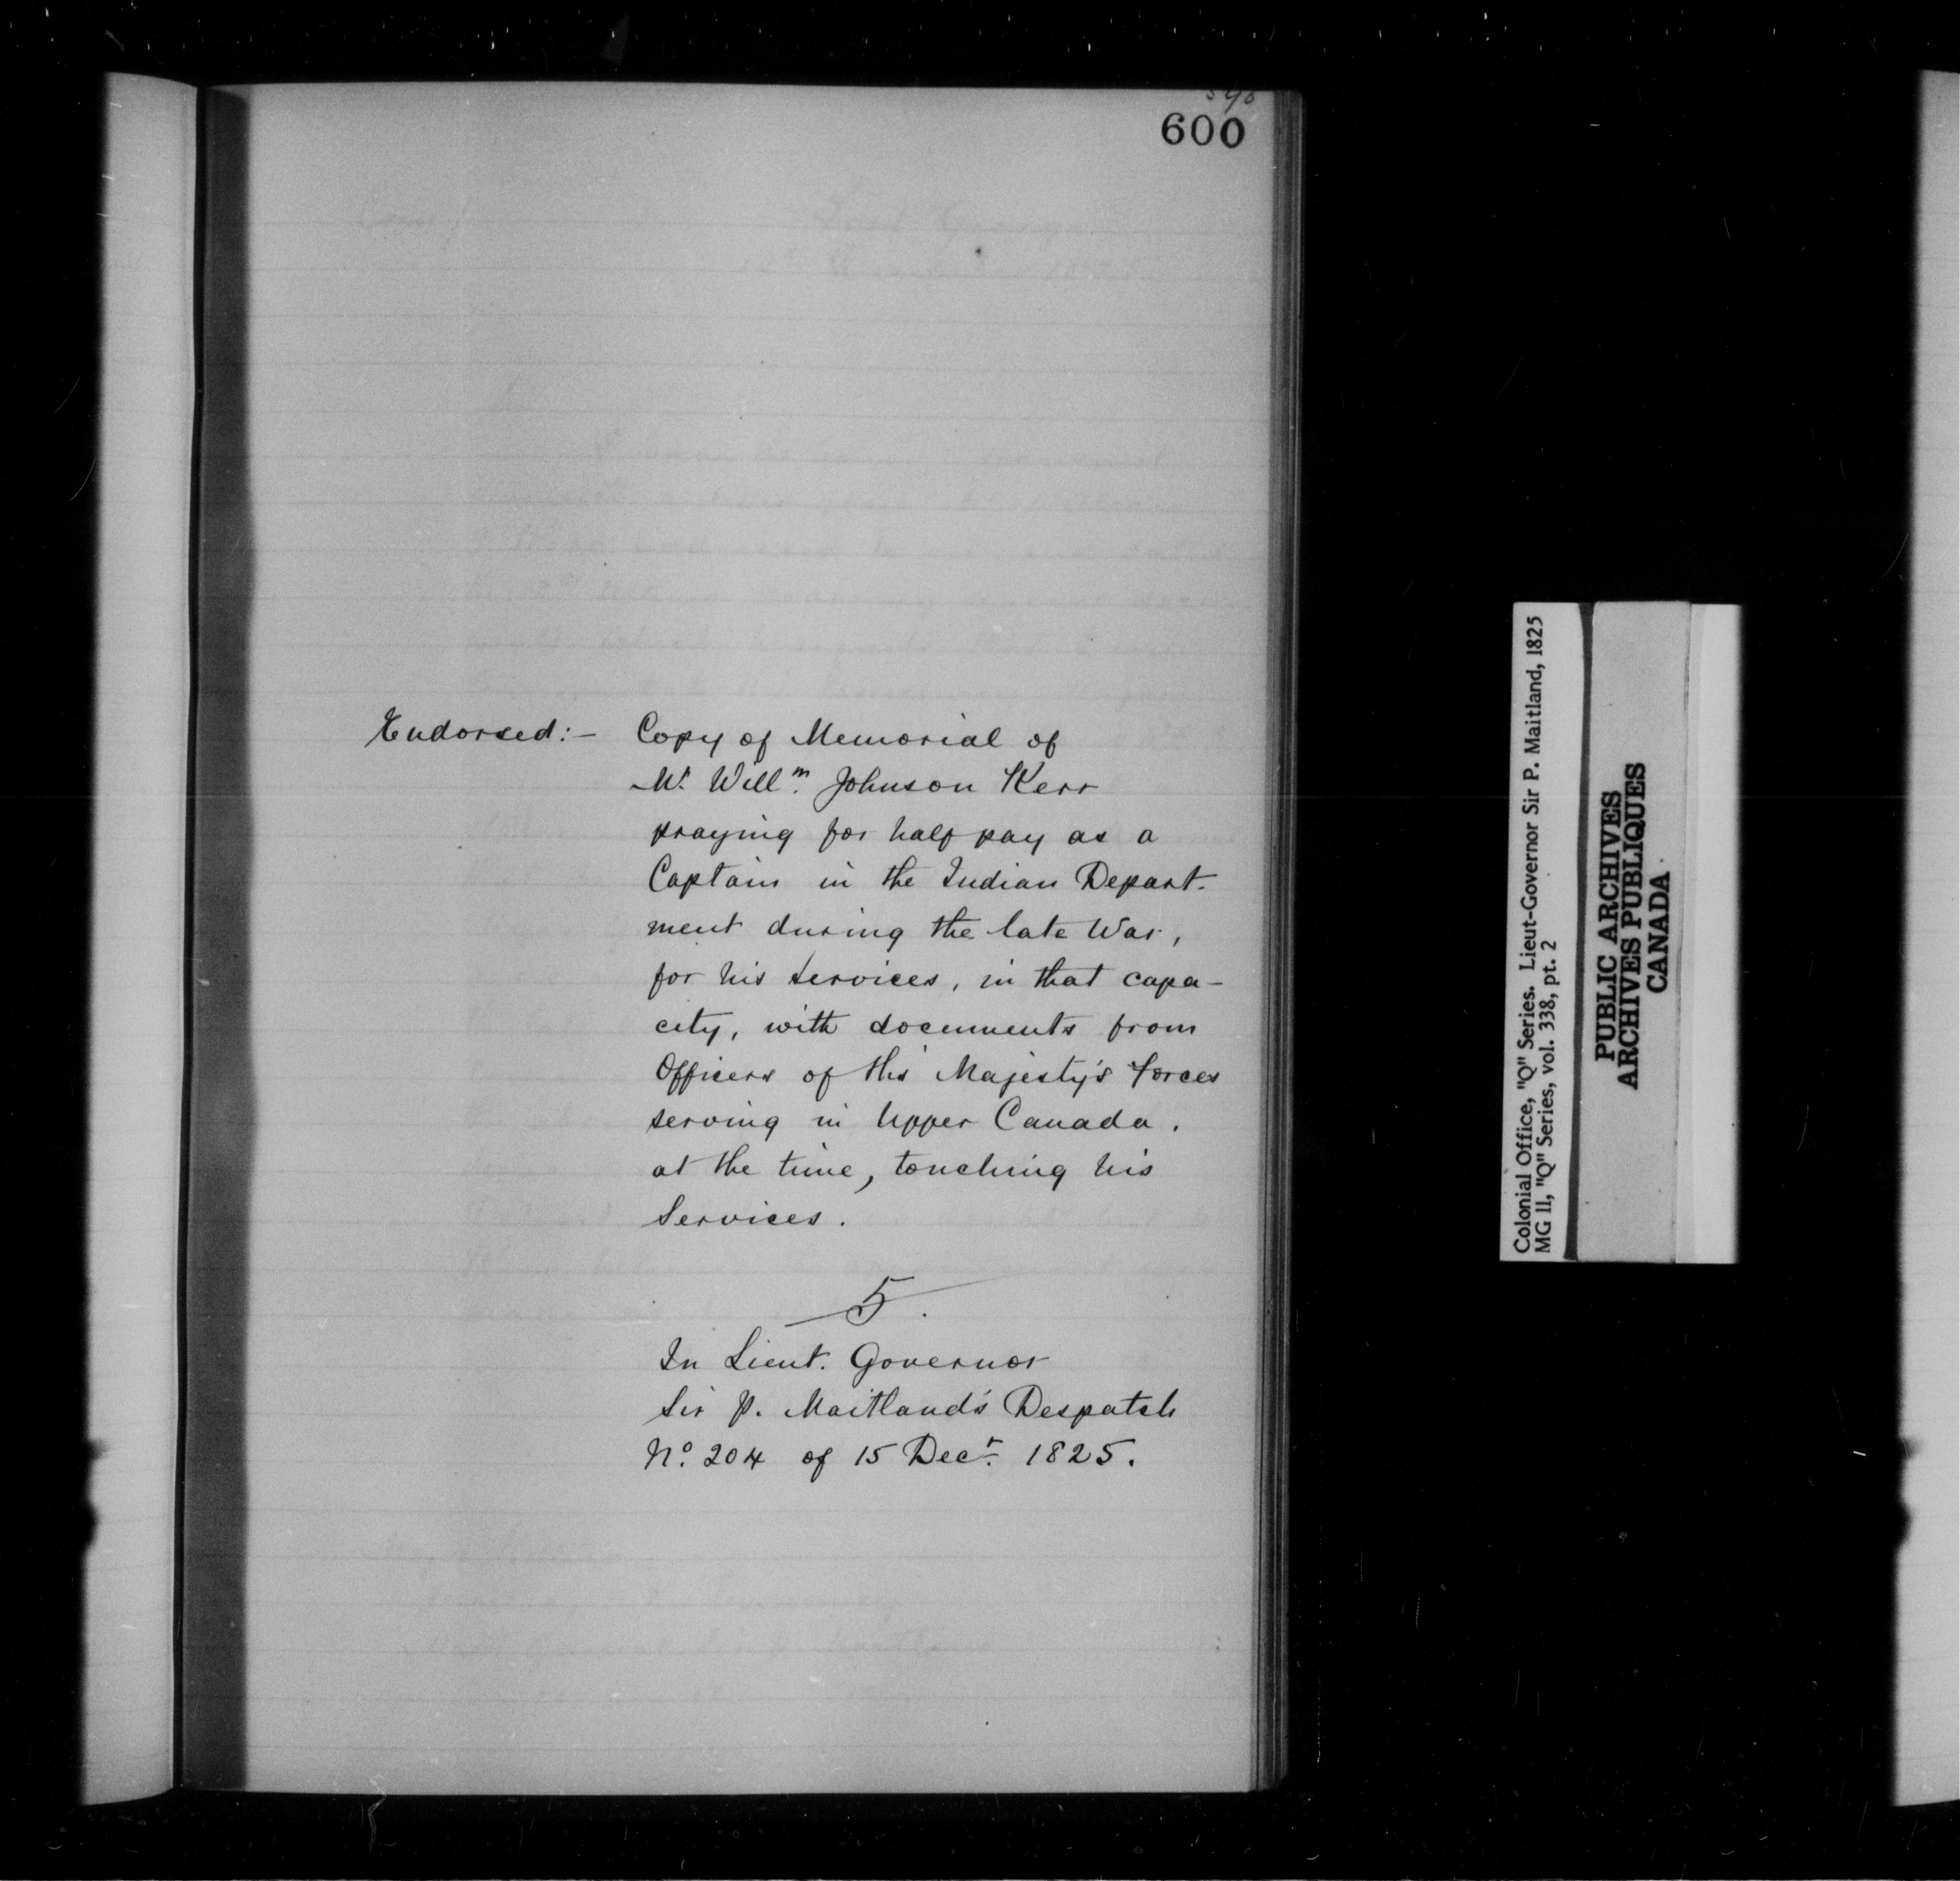 600
Endorsed:- Copy of Memorial of
Mr. Willm. Johnson Kerr
praying for half pay as a
Captain in the Indian Depart-
ment during the late War,
for his services, in that capa-
city, with documents from
Officers of His Majesty's Forces
serving in Upper Canada.
at the time, touching his
Services.
5.
In Lieut. Governor
Sir P. Maitland's Despatch
No. 204 of 15 Decr. 1825.
Colonial Office, "Q" Series. Lieut-Governor Sir P. Maitland, 1825
MG 11, "Q" Series, vol. 338, pt. 2
PUBLIC ARCHIVES
ARCHIVES PUBLIQUES
CANADA